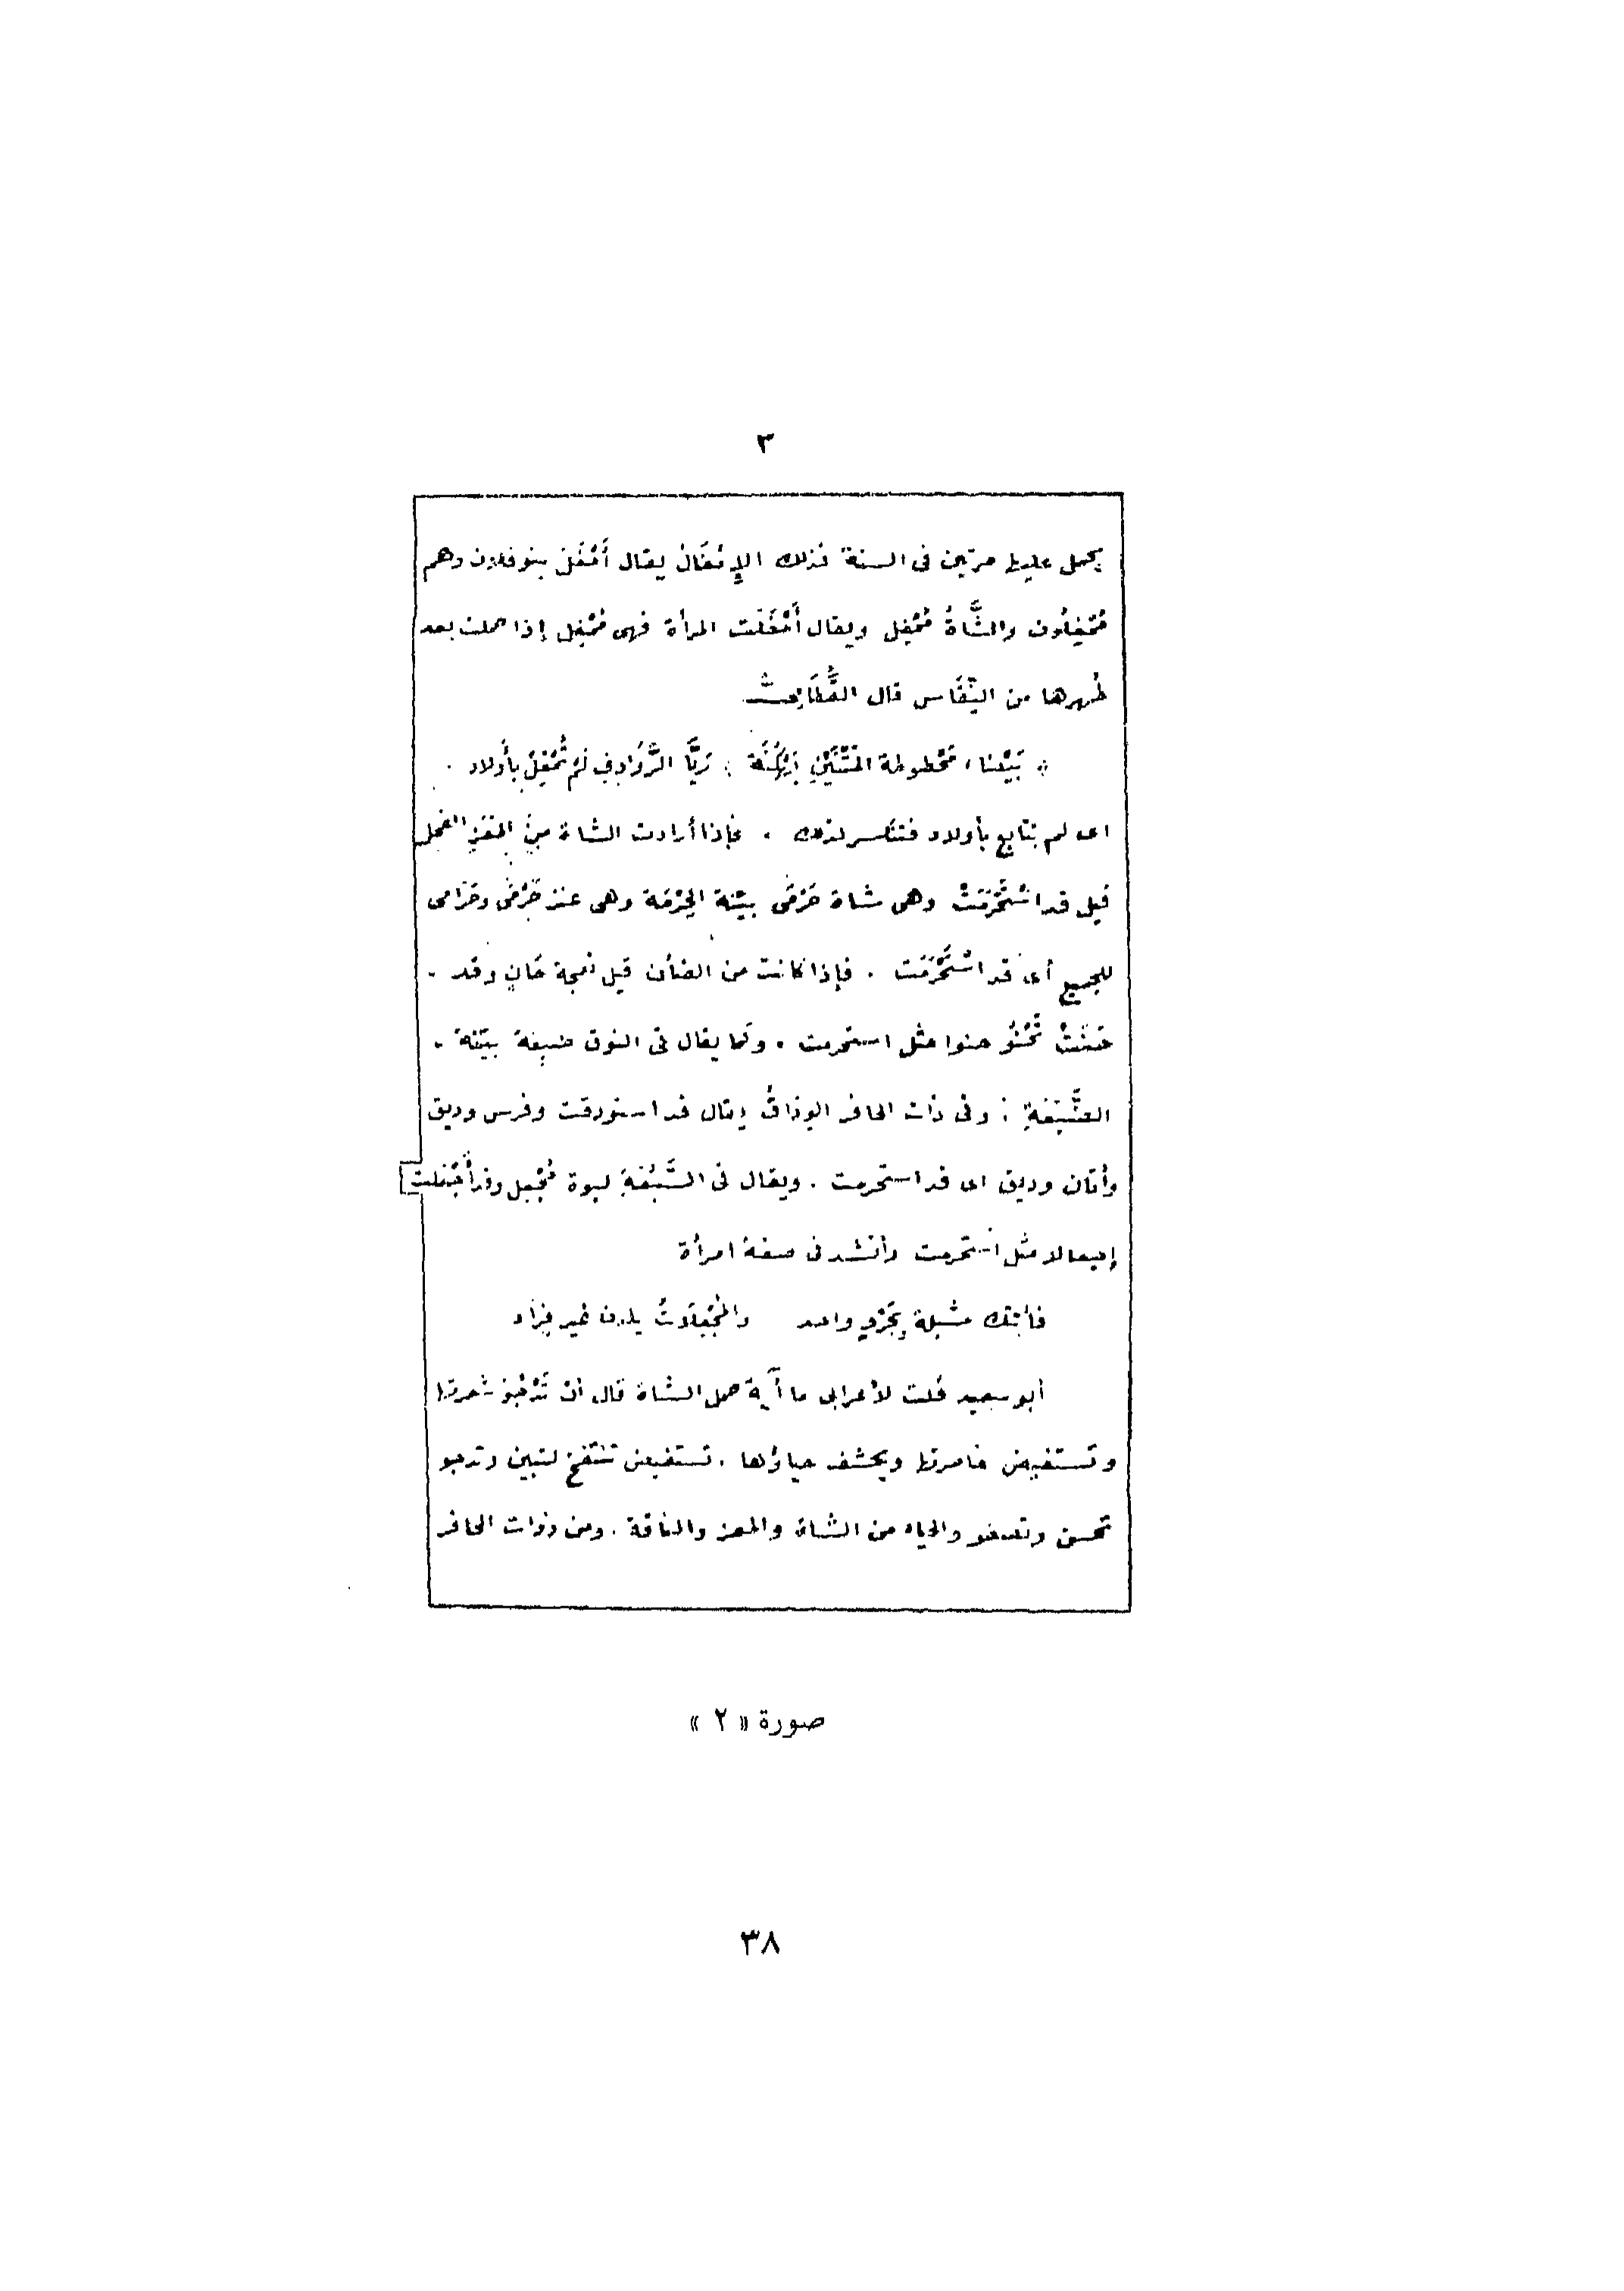 ٣
يحمل عليها مرتين فى السنة فذلك الإمْغَالُ يقال أَمْغَلَ بنو فلان وهم
مُمْغِلُون والشَّاةُ مُمْغِل ويقال أَمْغَلَت المرأة فهى مُمْغِل إذا حملت بعد
طُهرها من النِّفَاس قال القُطَامِىُّ
بَيْضَاء مَحْطوطة المَتْنَيْنِ بَهْكَنَة رَيَّا الرَّوَادِفِ لَمْ تُمْغِلْ بأَولاد .
اى لم تتابع بأولاد فتنكسر لذلك . فإذا أرادت الشاة مِنَ المَعَزِ الفحل
قيل قد اسْتَحْرَمَتْ وهى شاة حَرْمَى بيّنة الحِرْمَة وهى عنز حَرْمَى وحَرَامى
للجميع أى قد اسْتَحْرَمَت . فإذا كانت من الضأن قيل نعجة حَانٍ وقد .
حَنَتْ تَحْنُو حنوا مثل استحرمت . وكما يقال فى النوق ضبِعة بيّنة .
الضَّبَعَةِ : وفى ذات الحافر الوِدَاقُ يقال قد استودقت وفرس وديق
وأتان وديق اى قد استحرمت . ويقال فى السَّبُعَةِ لبوة مُجْعِل وقد أَجْعَلت
إجعالا مثل استحرمت وأنشد فى صفة امرأة
فأتتك مشبلة بِجَرْوٍ واحد والمُجْعِلَاتُ يلدن غير فِرَاد
أبو سعيد قلت لأعرابى ما آية حمل الشاة قال أن تَدْجُوَ شعرتها
وتستفيض خاصرتها ويحشف حياؤها . تستفيض تنتفخ لتبين وتدجو
تحسن وتصفو والحياء من الشاة والمعز والناقة . ومن ذوات الحافر
صورة « ٢ »
٣٨